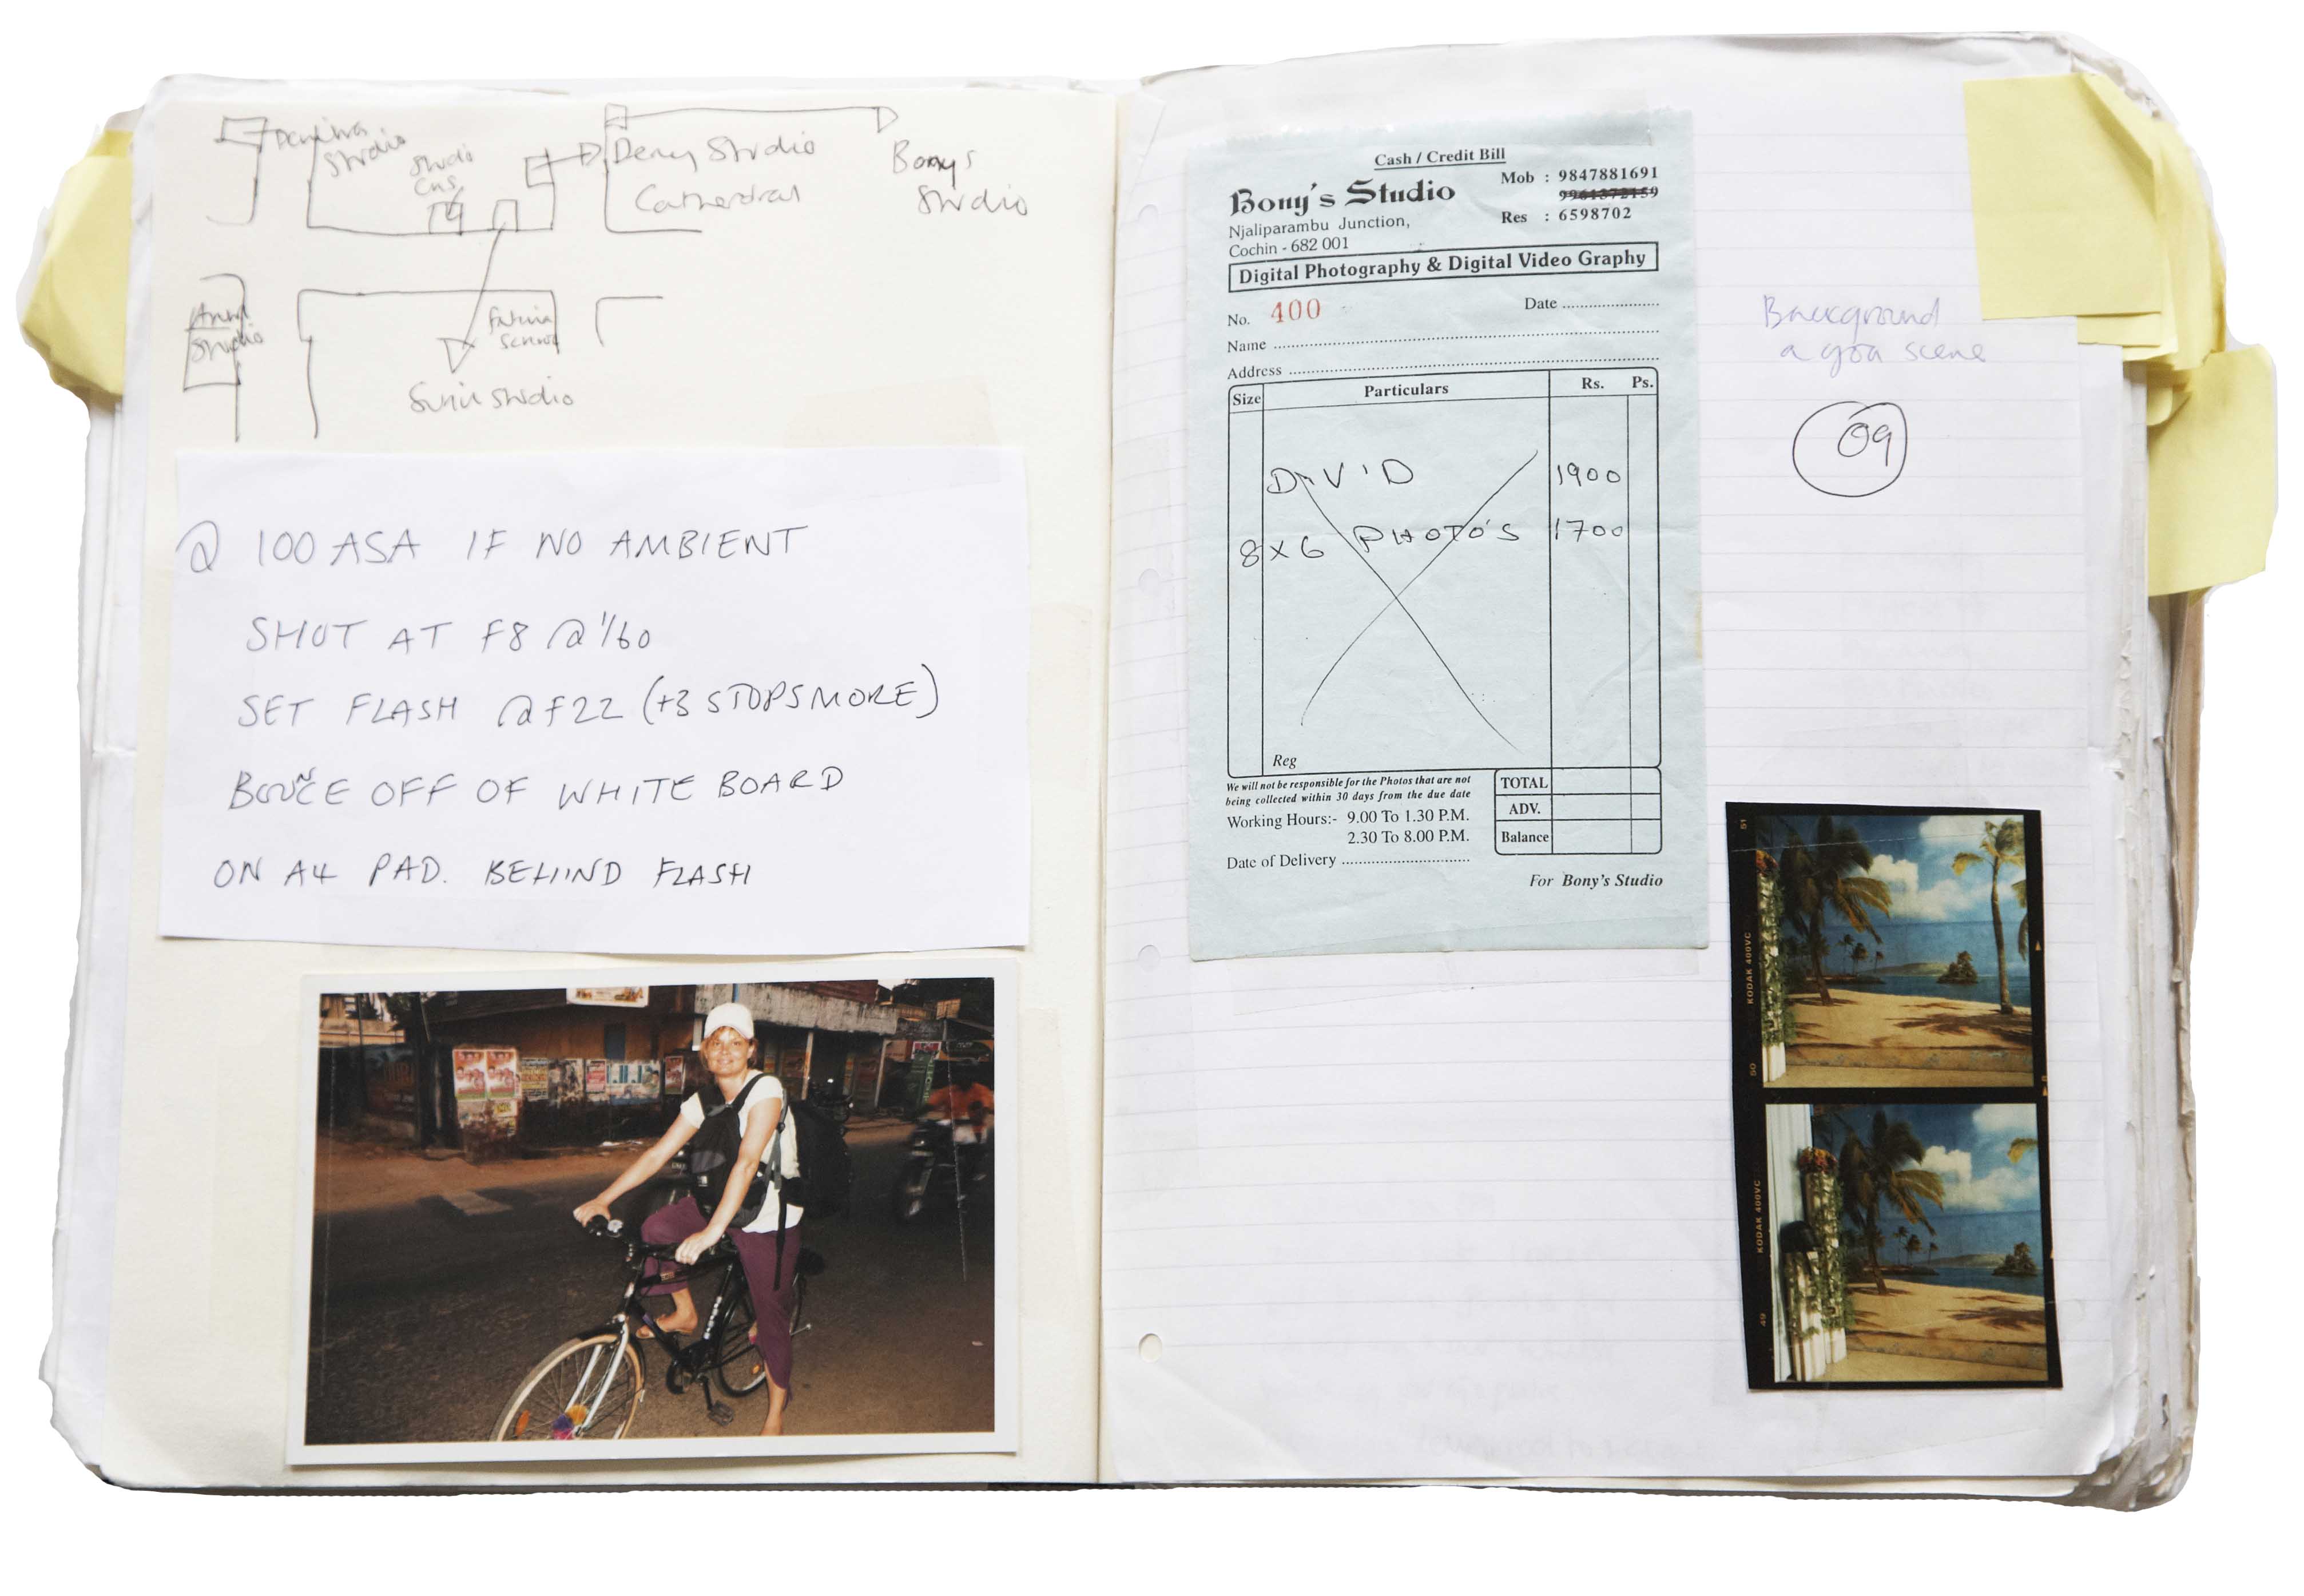 Studio
Studio
Deny Studio
Cathedral
Bonys
Studio
Studio
Studio
@ 100 ASA IF NO AMBIENT
SHOT AT F8 @ 1/60
SET FLASH @ F22 (+3 STOPS MORE)
BOUNCE OFF OF WHITE BOARD
ON A4 PAD. BEHIND FLASH
Cash / Credit Bill
Bony's Studio
Mob : 9847881691
9961372159
Njaliparambu Junction,
Res : 6598702
Cochin - 682 001
Digital Photography & Digital Video Graphy
No. 400 Date
Name
Address
Size Particulars Rs. Ps.
DVD 1900
8x6 PHOTO'S 1700
Reg
We will not be responsible for the Photos that are not
being collected within 30 days from the due date
Working Hours:- 9.00 To 1.30 P.M.
2.30 To 8.00 P.M.
Date of Delivery
TOTAL
ADV.
Balance
For Bony's Studio
Background
a goa scene
09
51
KODAK 400VC
50
KODAK 400VC
49